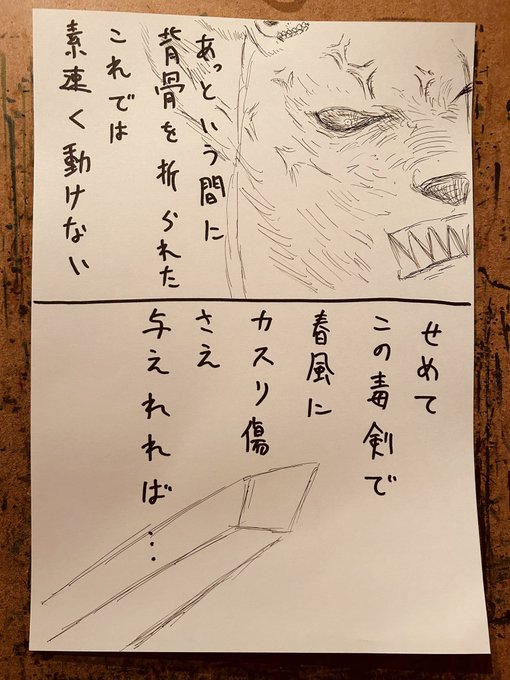 あっという間に
背骨を折られた
これでは
素速く動けない
せめて
この毒剣で
春風に
カスリ傷
さえ
与えれれば…